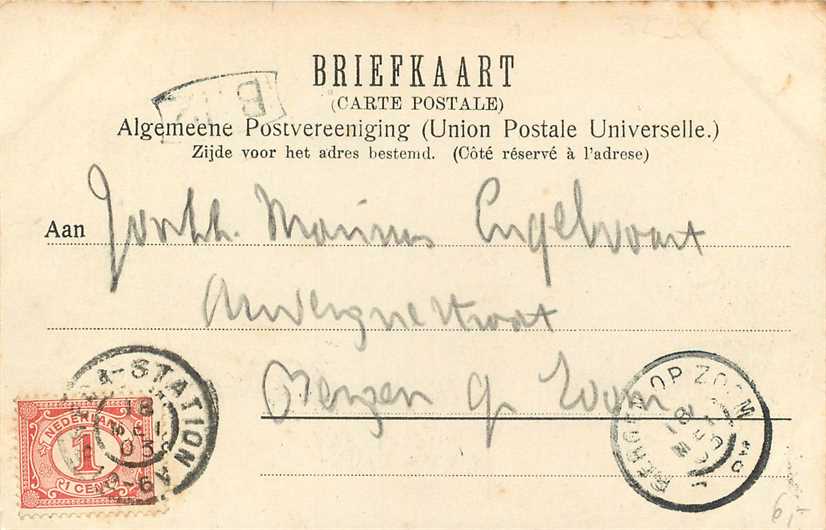 BRIEFKAART
(CARTE POSTALE)
Algemeene Postvereeniging (Union Postale Universelle.)
Zijde voor het adres bestemd. (Côté réservé à l'adres)
Aan Marinus Engelvaart
Auvergnestraat
Bergen op Zoom
-STATION
18
03
NEDERLAND
1
1 CENT
BERGEN OP ZOOM
6,-